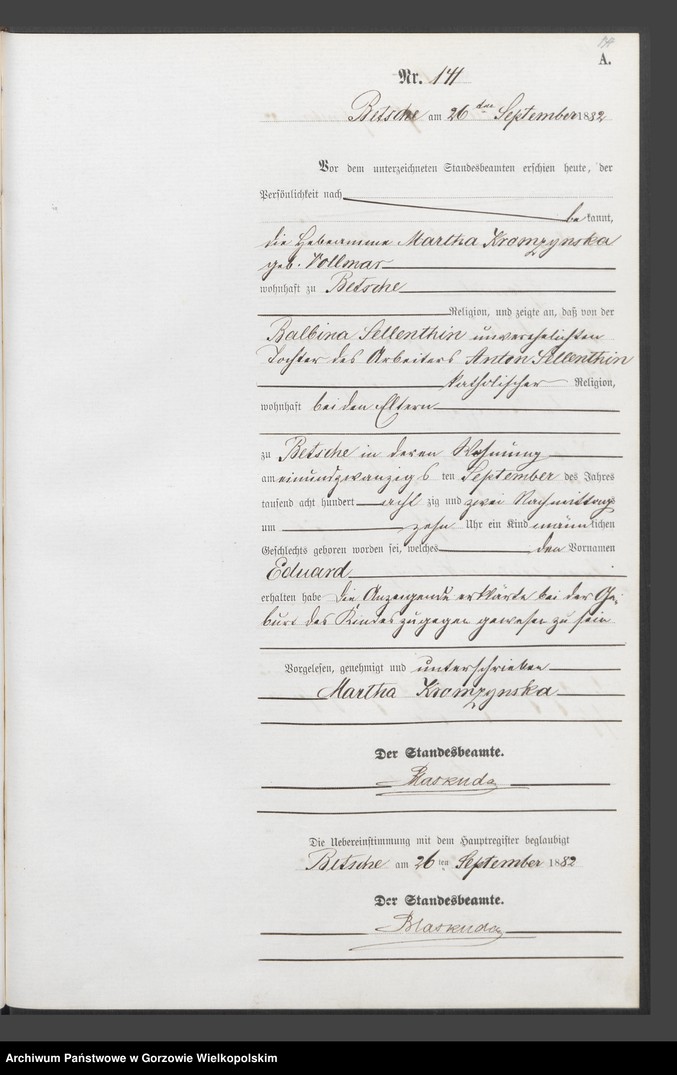 A.
Nr. 141
Betsche am 26 ten September 1882
Vor dem unterzeichneten Standesbeamten erschien heute, der
Persönlichkeit nach
bekannt,
die Hebeamme Martha Krompzynska
geb. Vollmar
wohnhaft zu Betsche
Religion, und zeigte an, daß von der
Balbina Sellenthin unverehelichten
Tochter des Arbeiters Anton Sellenthin
katholischer Religion,
wohnhaft bei den Eltern
zu Betsche in deren Wohnung
am einundzwanzigs ten September des Jahres
tausend acht hundert acht zig und zwei Nachmittags
um zehn Uhr ein Kind männlichen
Geschlechts geboren worden sei, welches den Vornamen
Eduard
erhalten habe die Anzeigende erklärte bei der Ge-
burt des Kindes zugegen gewesen zu sein
Vorgelesen, genehmigt und unterschrieben
Martha Krompzynska
Der Standesbeamte.
Blaskuda
Die Uebereinstimmung mit dem Hauptregister beglaubigt
Betsche am 26 ten September 1882
Der Standesbeamte.
Blaskuda
Archiwum Państwowe w Gorzowie Wielkopolskim